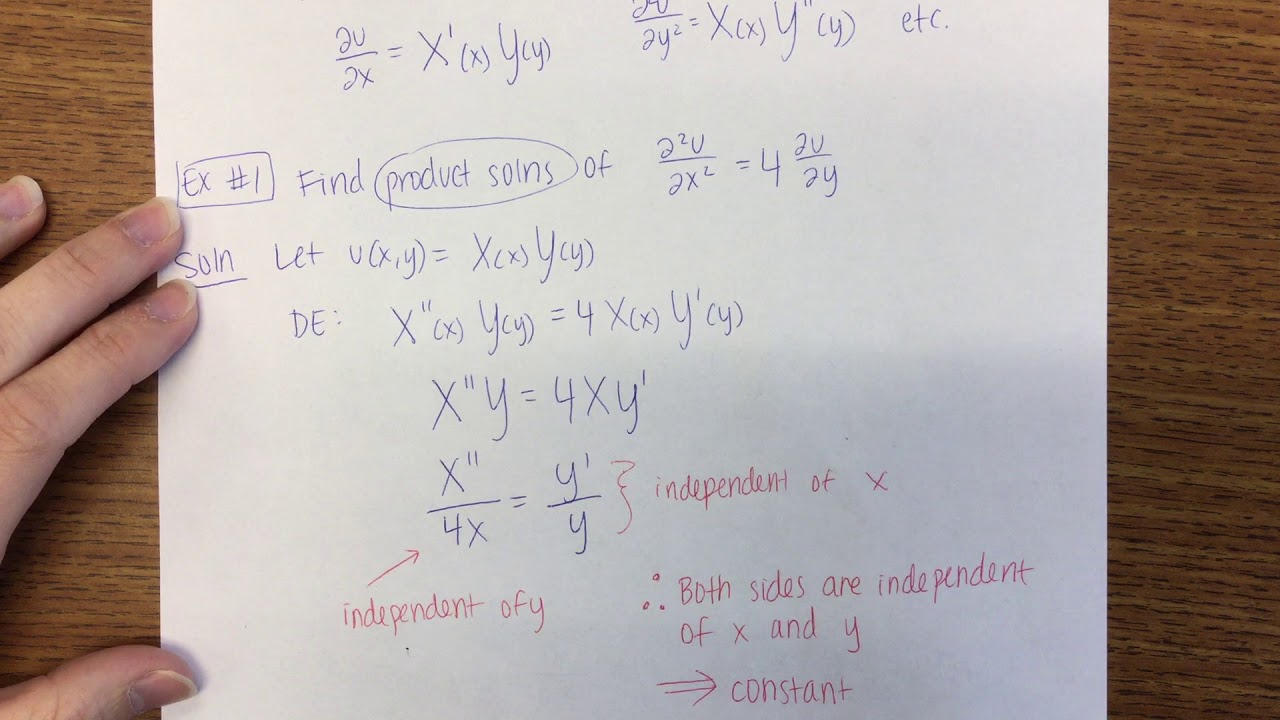 ∂u/∂x = X'(x) Y(y)    ∂²u/∂y² = X(x) Y''(y) etc.
Ex #1 Find product solns of ∂²u/∂x² = 4 ∂u/∂y
Soln Let u(x,y) = X(x) Y(y)
DE: X''(x) Y(y) = 4 X(x) Y'(y)
X''Y = 4XY'
X''/4X = Y'/Y } independent of x
independent of y
∴ Both sides are independent
of x and y
⟹ constant